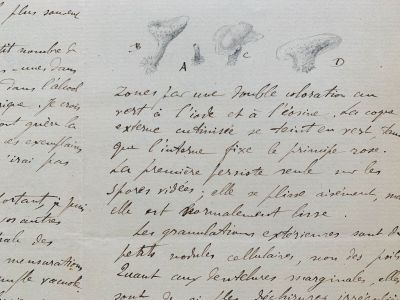 plus souvent
tit nombre de
unes dans
dans l'alcool
rique. Je crois
ont guère la
exemplaires
irai pas
portant, je puis
os autres
ale des
mensuration
B A C D
zones par une double coloration au
vert à l'iode et à l'éosine. La coque
externe cutinisée se teint en vert, tan
que l'interne fixe le principe rose.
La première persiste seule sur les
spores vidées ; elle se plisse aisément, ma
elle est normalement lisse.
Les granulations extérieures sont de
petits nodules cellulaires, non des poils
Quant aux dentelures marginales, elles
sont de si fines déchirures